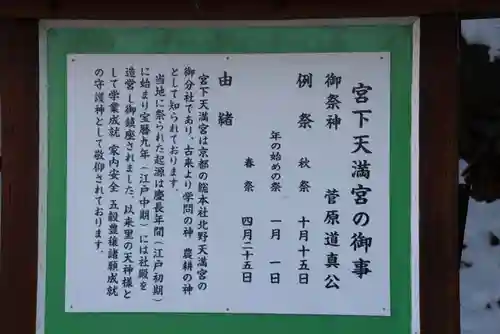 宮下天満宮の御事
御祭神　菅原道真公
例祭　秋祭　十月十五日
年の始めの祭　一月　一日
春祭　四月二十五日
由緒
宮下天満宮は京都の総本社北野天満宮の
御分社であり、古来より学問の神　農耕の神
として知られております。
当地に祭られた起源は慶長年間（江戸初期）
に始まり宝暦九年（江戸中期）には社殿を
造営し御鎮座されました。以来里の天神様と
して学業成就　家内安全　五穀豊穣諸願成就
の守護神として敬仰されております。